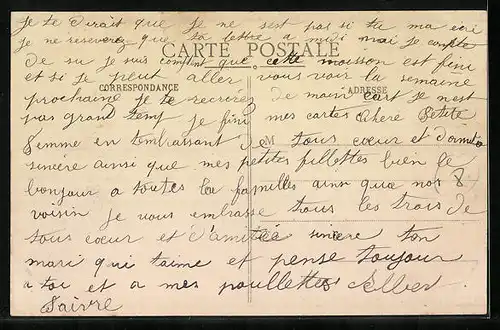 je te dirait que je ne sest pas si tu ma écri
je ne reseverez que ta lettre a midi mai je conpte
CARTE POSTALE
de su je suis contint que cette moisson est fini
et si je peut aller vous voir la semaine
CORRESPONDANCE ADRESSE
prochaine je te recrirez de main cart je nest
pas grand temp je fini mes cartes chere Petite
femme en tembrassant de tous cœur et damitié
M
sincère ainsi que mes petites fillettes bien le
bonjour a toutes la familles ainsi que nos
voisin je vous embrasse tous les trois de
tous cœur et d'amitiée sincere ton
mari qui taime et pense toujour
a toi et a mes poullettes Alber
Faivre